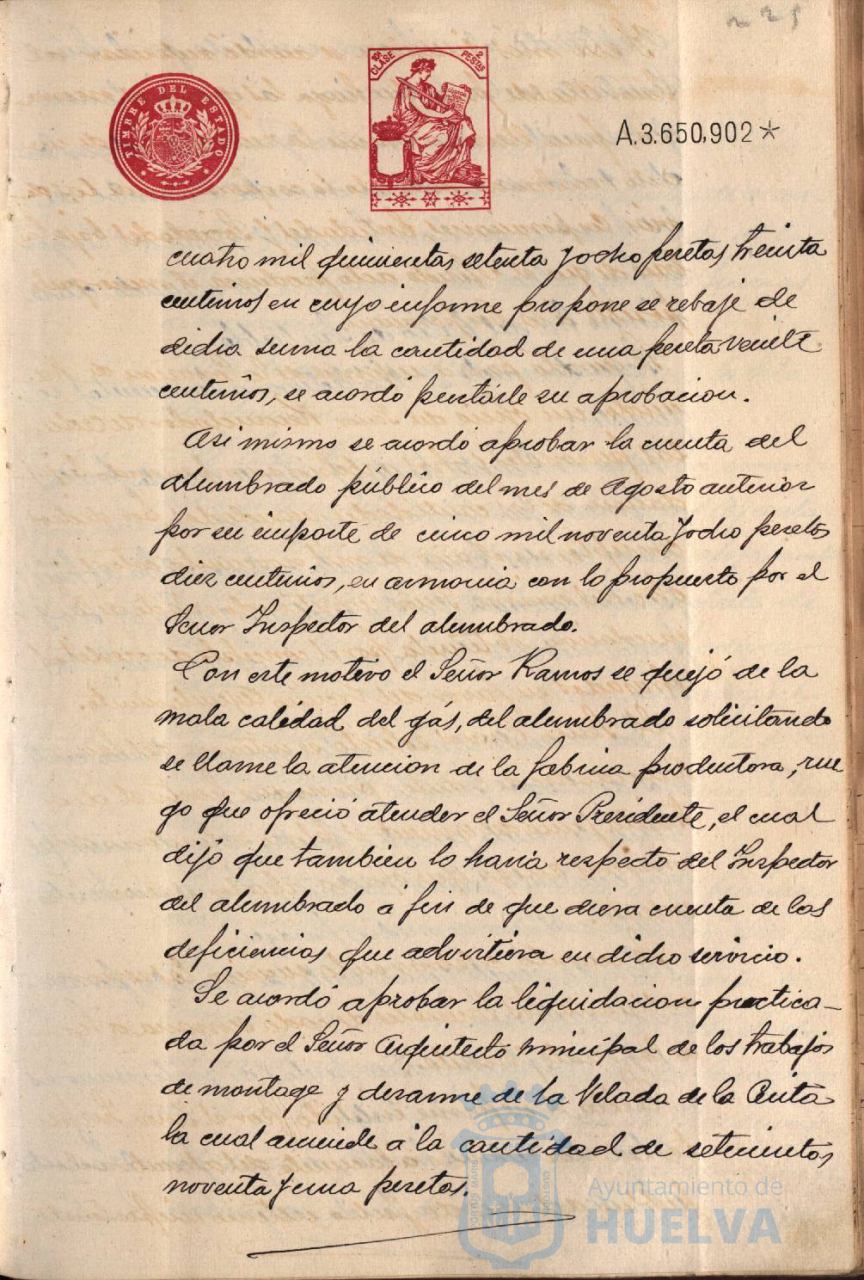 225
TIMBRE DEL ESTADO
10ª CLASE 2 PESETAS
A.3.650,902*
cuatro mil quinientas setenta y ocho pesetas treinta
centimos en cuyo informe propone se rebaje de
dicha suma la cantidad de una peseta veinte
centimos, se acordó prestarle su aprobacion.
Asi mismo se acordó aprobar la cuenta del
alumbrado público del mes de Agosto anterior
por su importe de cinco mil noventa y ocho pesetas
diez centimos, en armonia con lo propuesto por el
Señor Inspector del alumbrado.
Con este motivo el Señor Ramos se quejó de la
mala calidad del gás, del alumbrado solicitando
se llame la atencion de la fabrica productora, rue
go que ofreció atender el Señor Presidente, el cual
dijo que tambien lo haria respecto del Inspector
del alumbrado á fin de que diera cuenta de las
deficiencias que advirtiera en dicho servicio.
Se acordó aprobar la liquidacion practica-
da por el Señor Arquitecto municipal de los trabajos
de montage y desarme de la Velada de la Cinta
la cual asciende á la cantidad de setecientas
noventa y una pesetas.
Ayuntamiento de
HUELVA